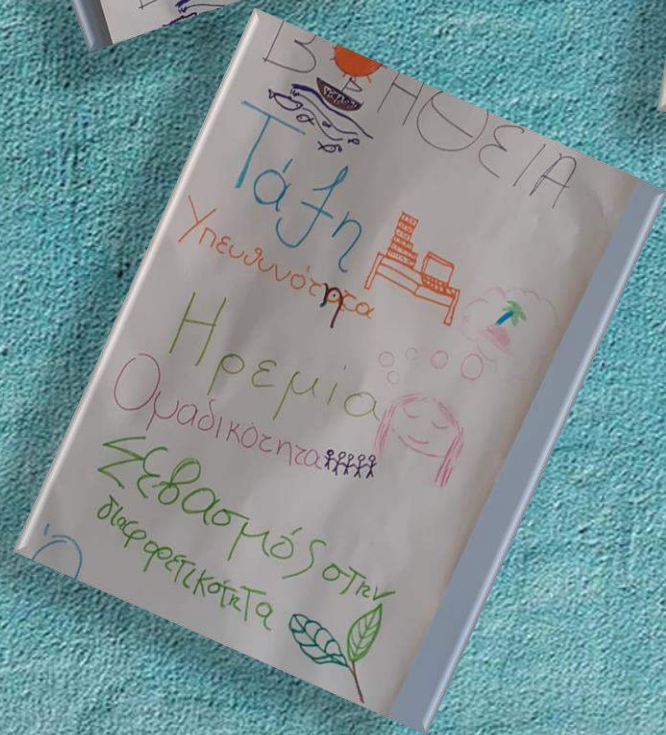 ΒΟΗΘΕΙΑ
Τάξη
Υπευθυνότητα
Ηρεμία
Ομαδικότητα
Σεβασμός στην
διαφορετικότητα